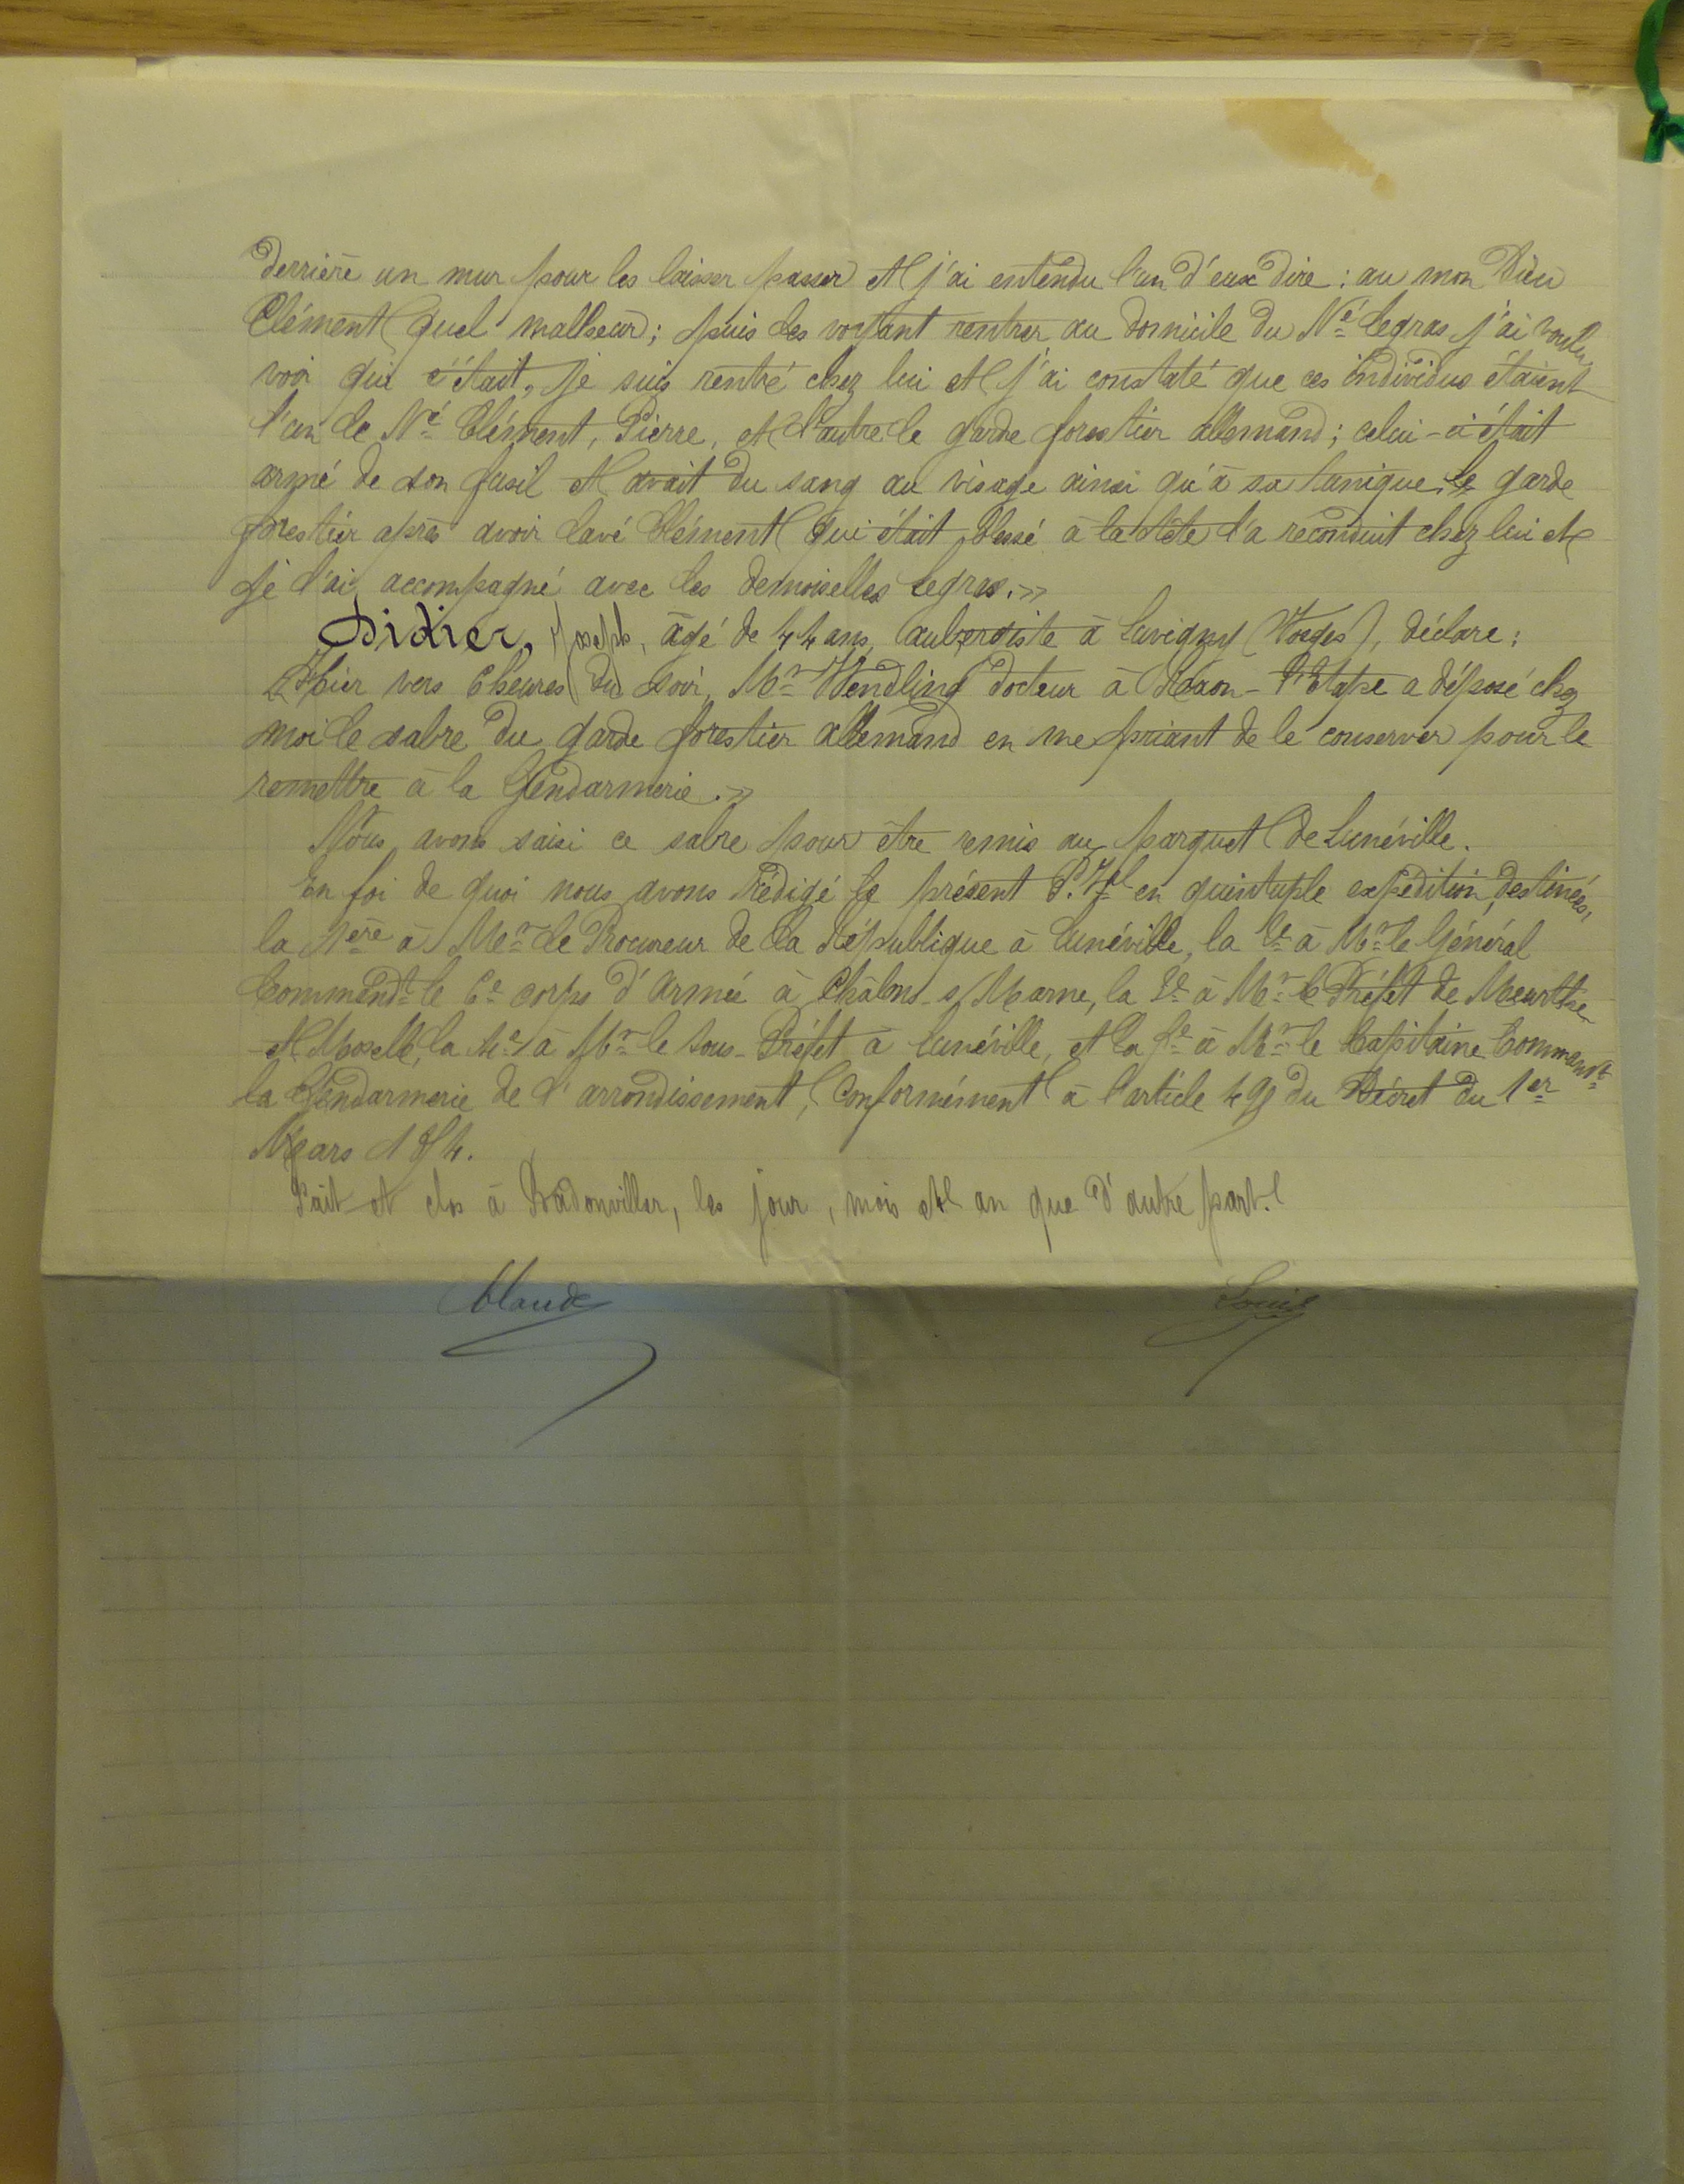 derrière un mur pour les laisser passer et j'ai entendu l'un d'eux dire : au mon Dieu
Clément quel malheur ; puis les voyant rentrer au domicile du Né Legras, j'ai voulu
voir qui c'était, je suis rentré chez lui et j'ai constaté que ces individus étaient
l'un le Né Clément, Pierre, et l'autre le garde forestier allemand ; celui-ci était
armé de son fusil et avait du sang au visage ainsi qu'à sa tunique, le garde
forestier après avoir lavé Clément qui était blessé à la tête l'a reconduit chez lui et
je l'ai accompagné avec les demoiselles Legras. »
Didier, Joseph, âgé de 44 ans, aubergiste à Luvigny (Vosges), déclare :
« Hier vers 6 heures du soir, Mr Wendling docteur à Raon-l'Etape a déposé chez
moi le sabre du garde forestier allemand en me priant de le conserver pour le
remettre à la Gendarmerie. »
Nous avons saisi ce sabre pour être remis au parquet de Lunéville.
En foi de quoi nous avons rédigé le présent P.Val en quintuple expédition, destinées,
la 1ère à Mr le Procureur de la République à Lunéville, la 2e à Mr le Général
Commendt le 6e corps d'Armée à Châlons-s/Marne, la 3e à Mr le Préfet de Meurthe
et Moselle, la 4e à Mr le Sous-Préfet à Lunéville, et la 5e à Mr le Capitaine Commandt
la Gendarmerie de l'arrondissement, Conformément à l'article 495 du Décret du 1er
Mars 1854.
Fait et clos à Badonviller, les jour, mois et an que d'autre part.
Claude Louis